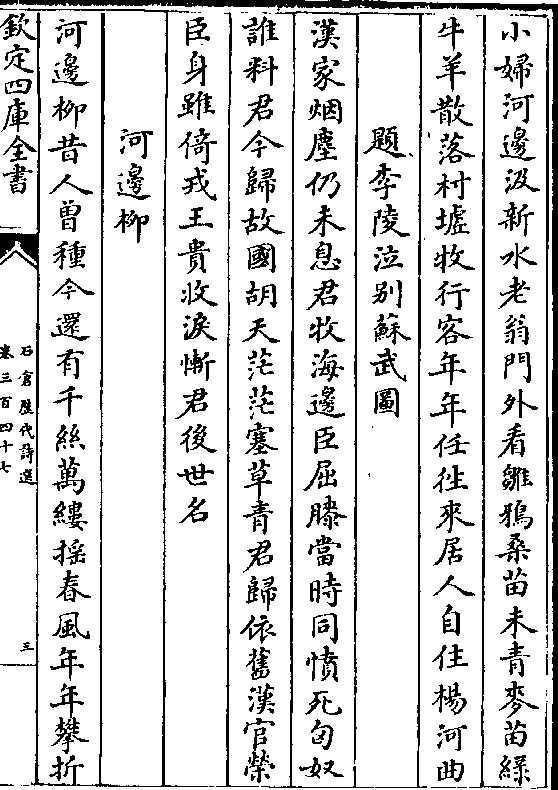 小婦河邊汲新水老翁門外看雛鴉桑苗未青麥苗綠
牛羊散落村墟牧行客年年任往來居人自住楊河曲
題李陵泣別蘇武圖
漢家烟塵仍未息君牧海邊臣屈膝當時同憤死匈奴
誰料君今歸故國胡天茫茫塞草青君歸依舊漢官榮
臣身雖倚戎王貴收淚慚君後世名
河邊柳
河邊柳昔人曽種今還有千絲萬縷揺春風年年攀折
欽定四庫全書
石倉歷代詩選
卷三百四十七
三